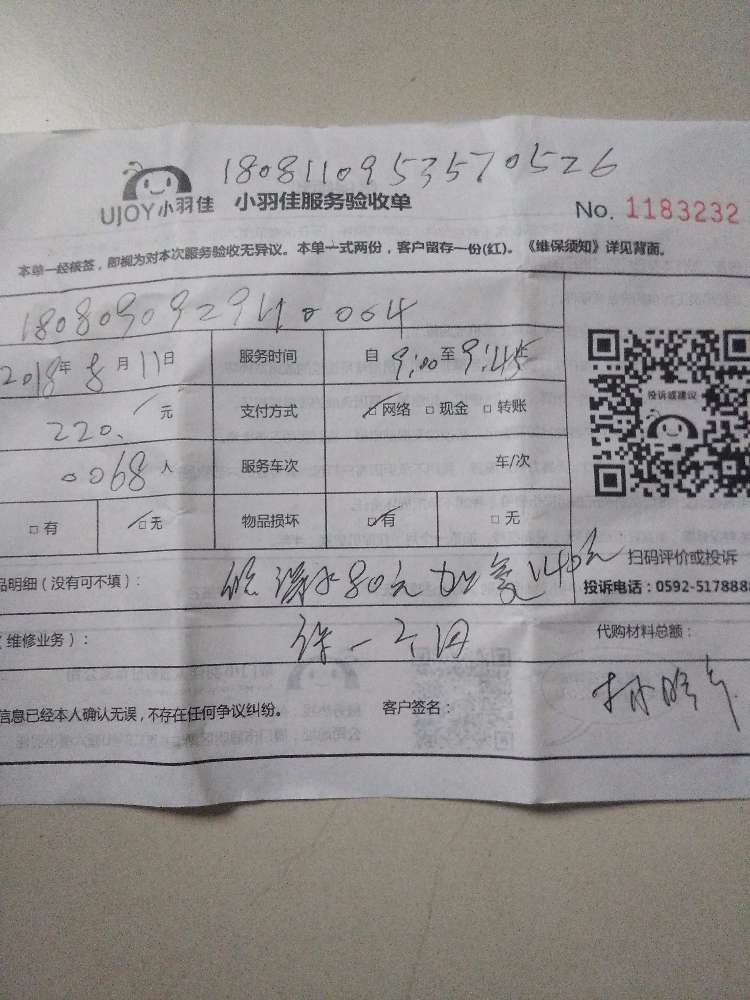 180811095357 0526
UJOY小羽佳 小羽佳服务验收单
No. 1183232
本单一经核签，即视为对本次服务验收无异议。本单一式两份，客户留存一份(红)。《维保须知》详见背面。
2018年8月11日 服务时间 自9:00至9:45
220. 元 支付方式 □网络 □现金 □转账
投诉或建议
0068人 服务车次 车/次
□有 □无 物品损坏 □有 □无
扫码评价或投诉
品明细（没有可不填）： 80元 140元
投诉电话：0592-5178888
（维修业务）： 一个月 代购材料总额：
信息已经本人确认无误，不存在任何争议纠纷。 客户签名：